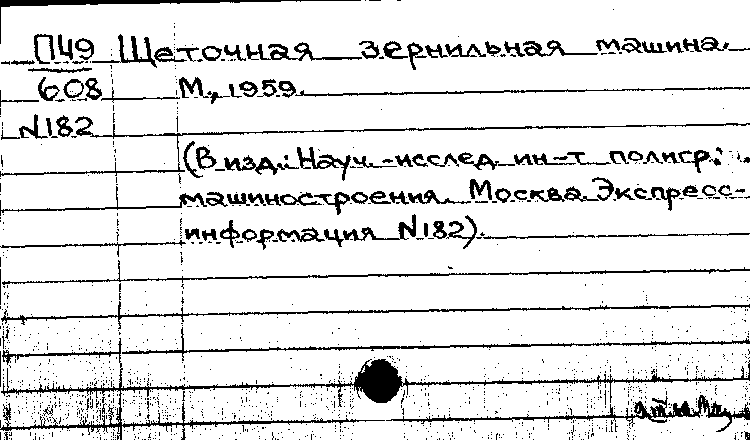 П49 Щеточная зернильная машина.
608 М., 1959.
N182
(В изд.: Науч.-исслед. ин-т полигр.
машиностроения. Москва. Экспресс-
информация N182).